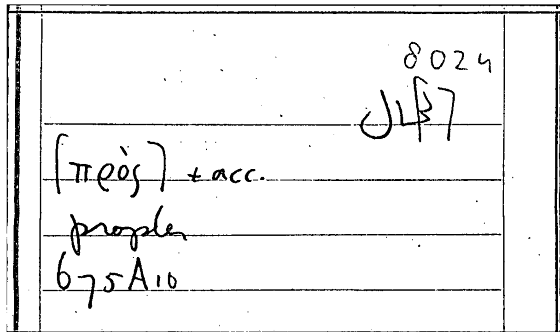 8024
[πρὸς] + acc.
propter
675A10